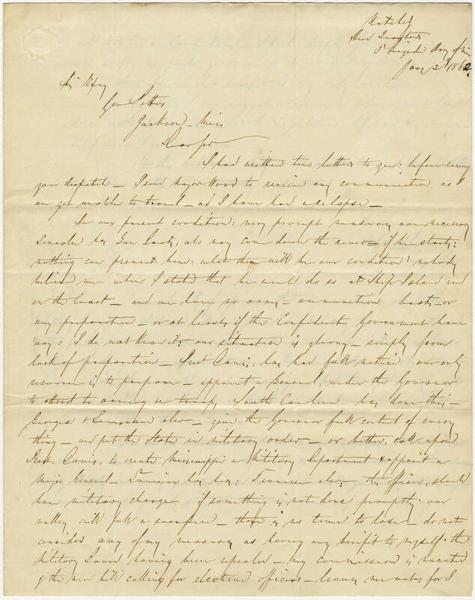 Natchez
Head Quarters
5 Brigade Army of Miss
Jany 2 1862
His Excy
Gov Pettus
Jackson Miss
Dear Sir
I had written two letters to you: before receiving
your dispatch – I send Major Wood to receive any communication as
am yet unable to travel – as I have had a relapse –
In our present condition: very prompt measures are necessary
Lincoln has San Jacinto, also may come down the river – if he starts:
nothing can prevent him: what then will be our condition? nobody
believed me when I stated that he would do so at Ship Island and
on the Coast – and we have no army – ammunition boats – or
any preparation – or at least if the Confederate Government have
any: I do not hear it our situation is gloomy – simply from
lack of preparation – Prest Davis, has had full notice our only
recourse is to prepare – appoint a General, under the Governor
to attend to arming our troops, South Carolina has done this –
Georgia & Louisiana also – give the Governor full control of every
thing – and put the State in military order – or better, call upon
Prest. Davis: to create Mississippi a Military Department & appoint a
Major General – Louisiana has one: Tennessee also: The officer should
have military charge if something is not done promptly: our
valley will fall a sacrifice – there is no time to lose – do not
consider any of my measures as having any benefit to myself: the
Military Board having been repealed – my commission is vacated
& the new bill calling for elections officers – leaves me out: for I